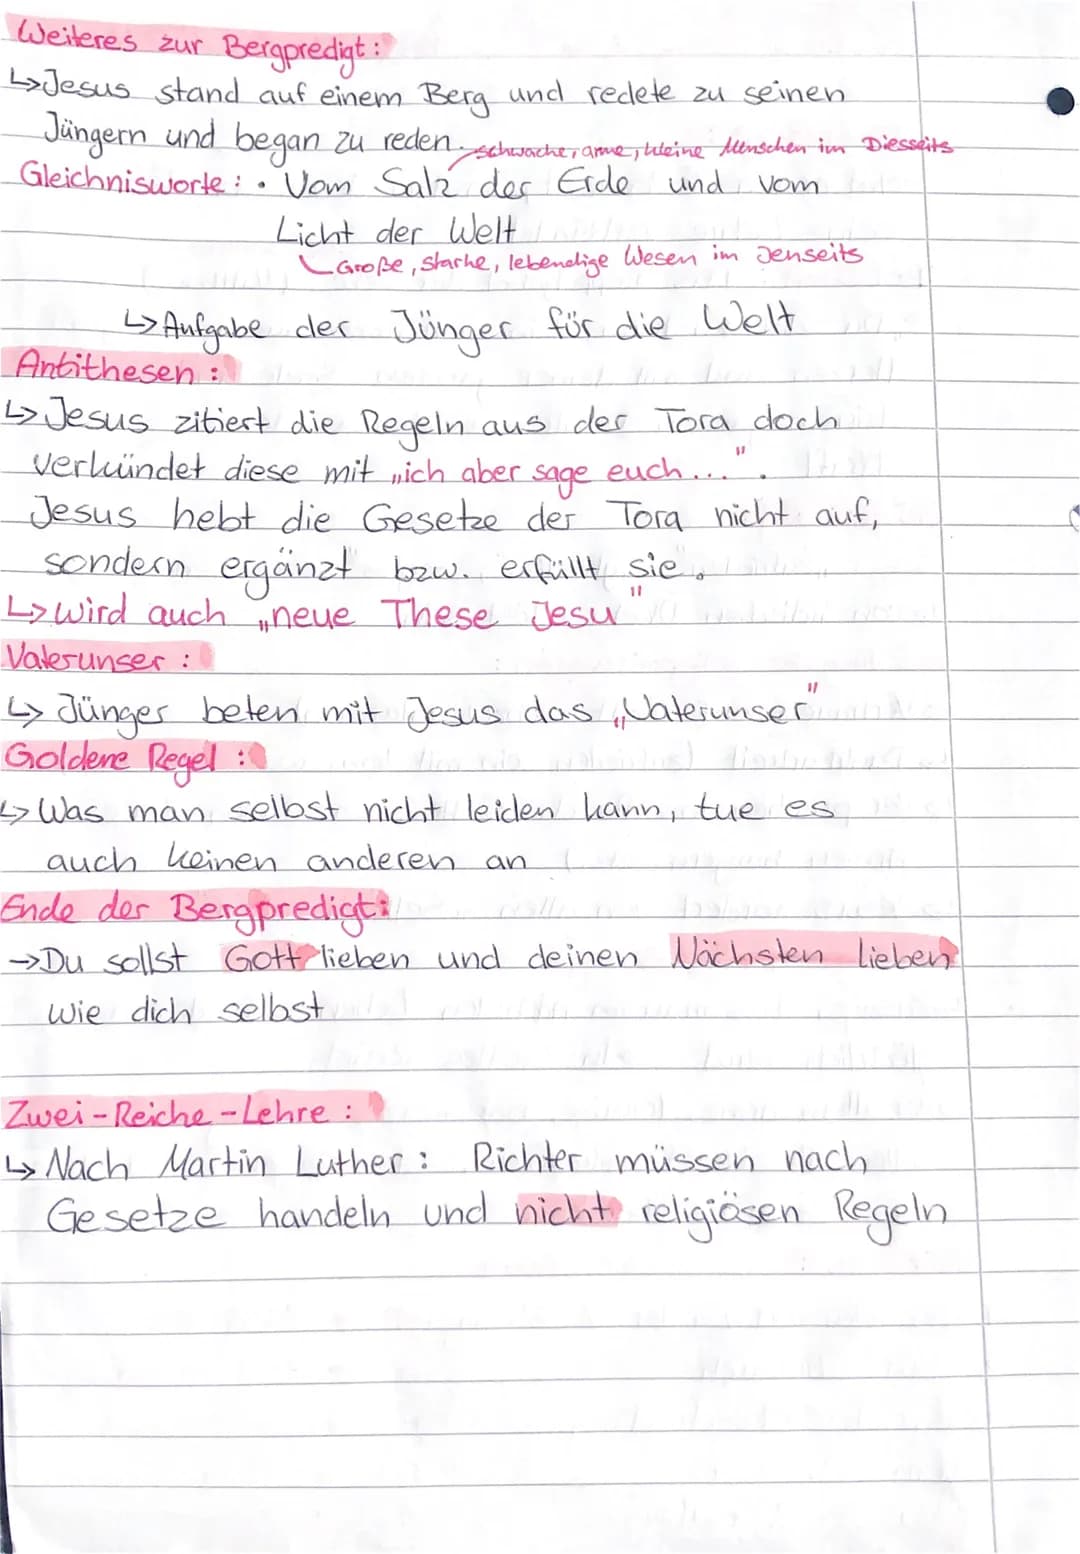 Weiteres zur Bergpredigt:
↳Jesus stand auf einem Berg und redete zu seinen
Jüngern und began zu reden.
schwache, arme, kleine Menschen im Diesseits
Gleichnisworte: • Vom Salz der Erde und vom
Licht der Welt
Große, starke, lebendige Wesen im Jenseits
↳Aufgabe der Jünger für die Welt
Antithesen:
↳Jesus zitiert die Regeln aus der Tora doch
verkündet diese mit „ich aber sage euch...".
Jesus hebt die Gesetze der Tora nicht auf,
sondern ergänzt bzw. erfüllt sie.
↳wird auch „neue These Jesu"
Vaterunser:
↳Jünger beten mit Jesus das „Vaterunser"
Goldene Regel:
↳Was man selbst nicht leiden kann, tue es
auch keinen anderen an
Ende der Bergpredigt:
→Du sollst Gott lieben und deinen Nächsten lieben
wie dich selbst
Zwei-Reiche-Lehre:
↳Nach Martin Luther: Richter müssen nach
Gesetze handeln und nicht religiösen Regeln